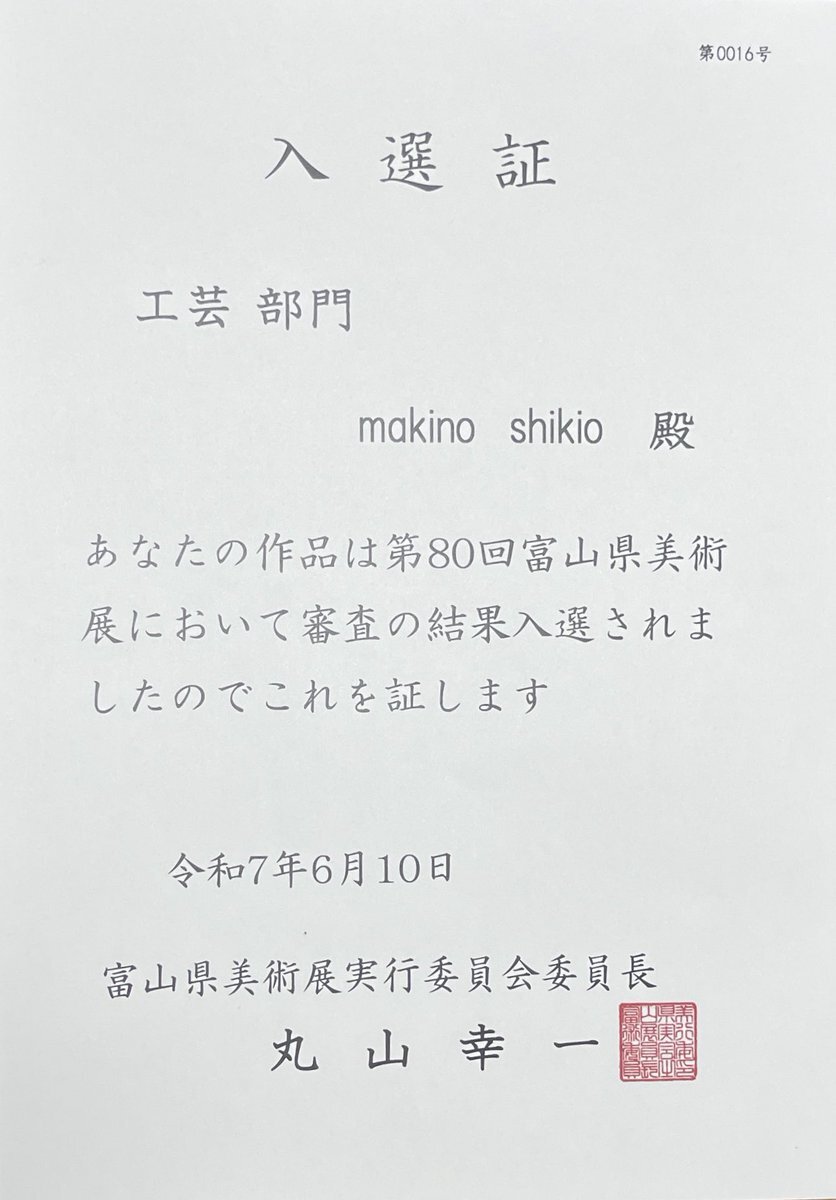 第0016号
入選証
工芸 部門
makino shikio 殿
あなたの作品は第80回富山県美術
展において審査の結果入選されま
したのでこれを証します
令和7年6月10日
富山県美術展実行委員会委員長
丸山幸一